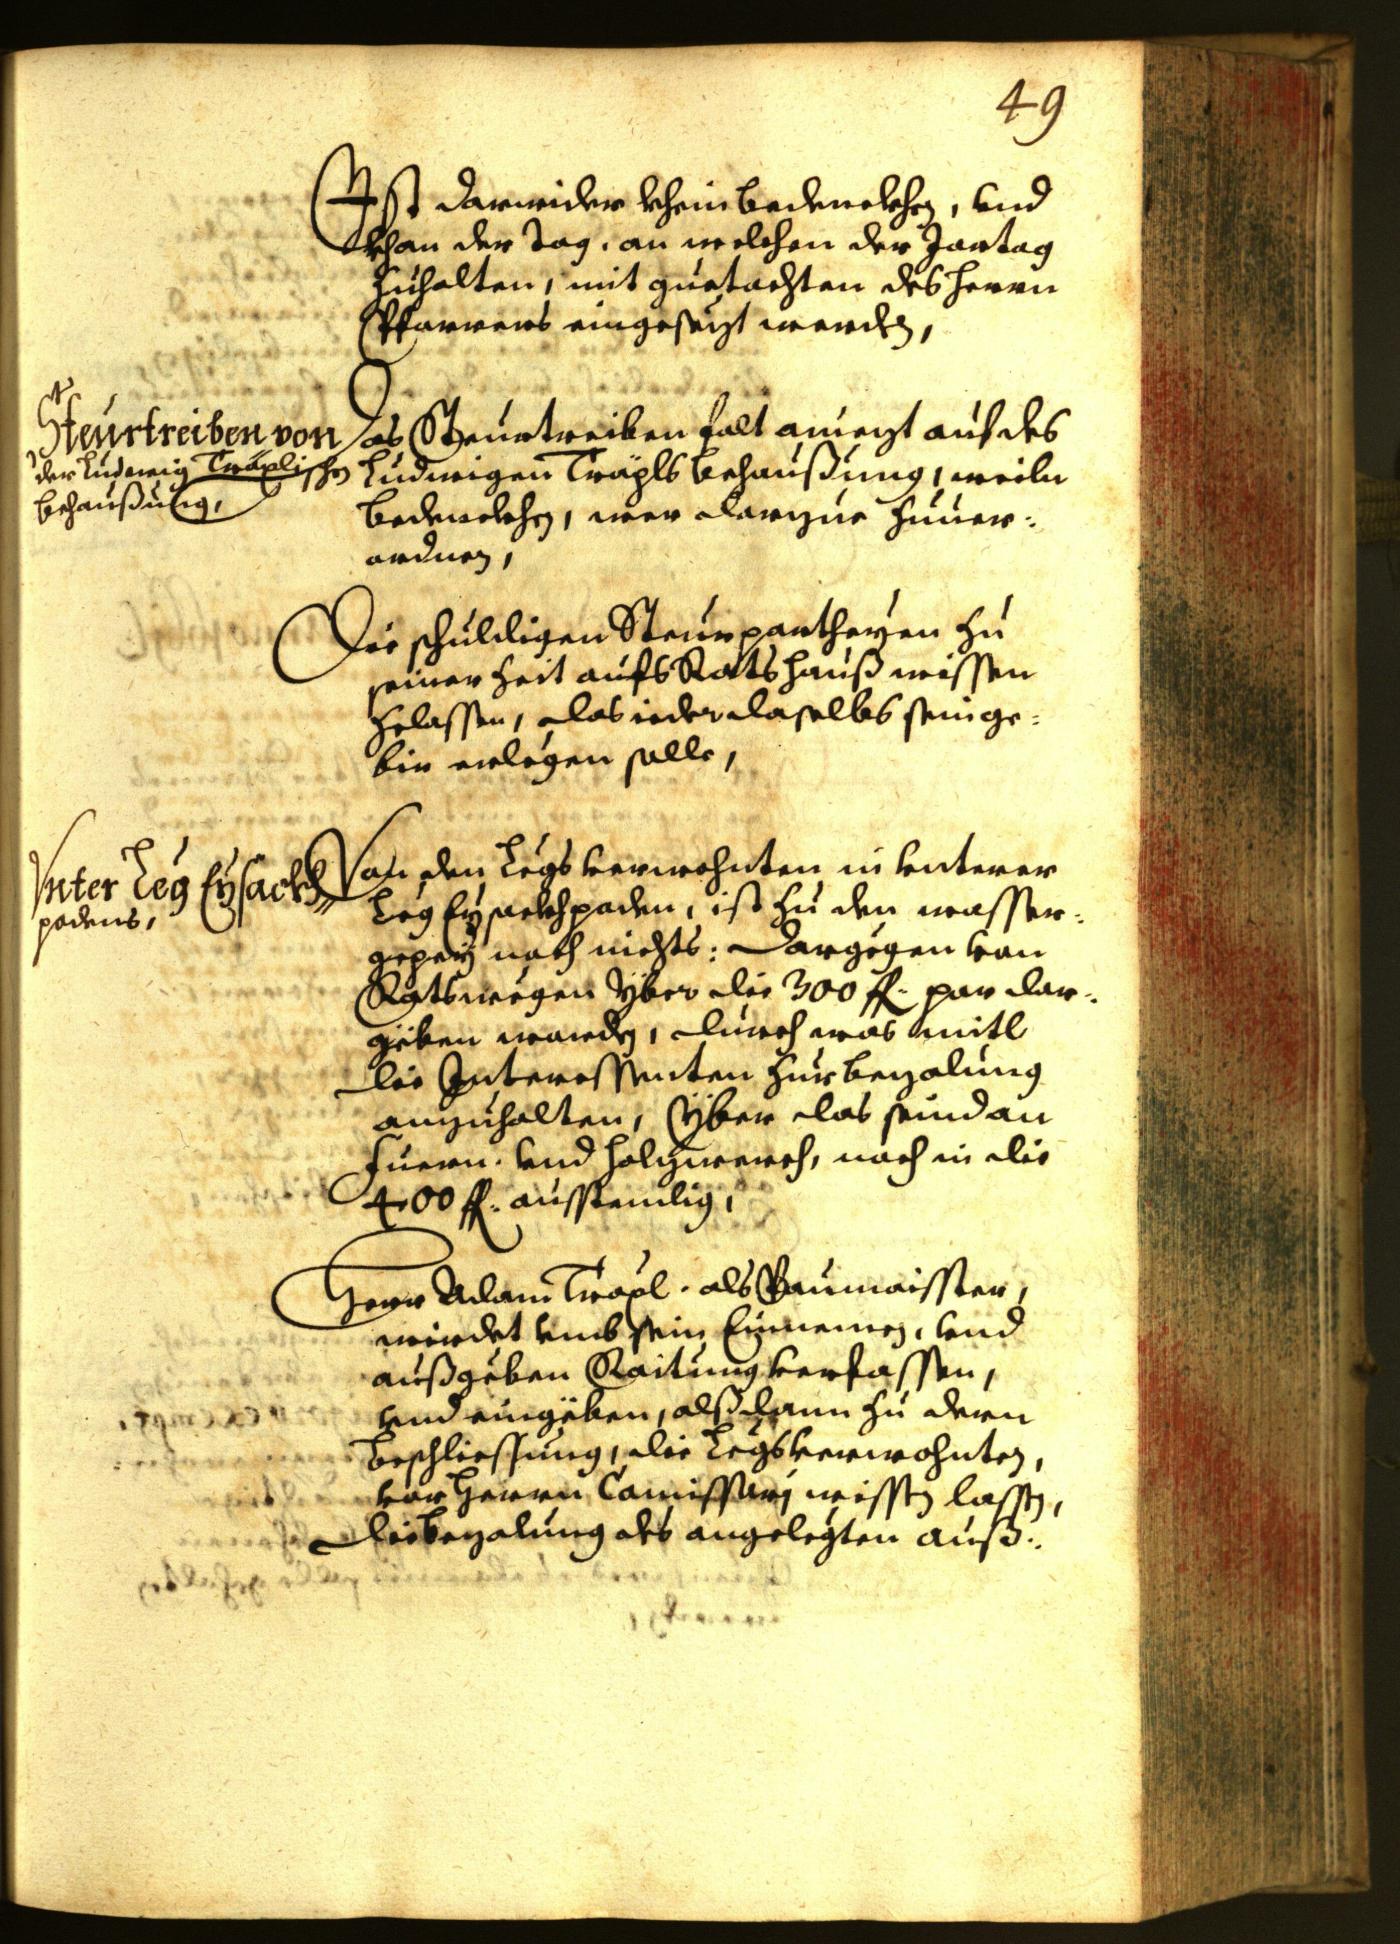 49
Ist darwider khein bedenckhen, vnd
khan der Tag, an welchen der Jartag
zuhalten, mit guetachten des herrn
Pfarrers eingesezt werden,
Steurtreiben von
der Ludwig Träplischen
behaußung,
Das Steurtreiben falt anyezt auf des
Ludwigen Träpls behaußung, weiln
bedenckhen, wer darzue zuuer:
ordnen,
Die schuldigen Steurpartheyen zu
seiner Zeit aufs Ratshauß wissen
zelassen, das ieder daselbs sein ge:
bir erlegen solle,
Vnter Leg Eysackh
podens,
Von den Legsverwohnten in vnterer
Leg Eysackhpoden, ist zu den wasser:
gepey noch nichts: dargegen von
Ratswegen yber die 300 fl. par dar:
geben worden, durch was mitl
die Interessenten zur bezalung
anzuhalten, Yber das seind an
Fuern. vnd holzwerch, noch in die
400 fl. ausstendig,
Herr Adam Träpl. als Baumaisster,
wirdet vmb sein Einnemen, vnd
außgeben Raitung verfassen,
vnd eingeben, alßdann zu dern
beschliessung, die Legsverwohnten,
vor herrn Comissarj wissen lassen,
die bezalung des angelegten auß: